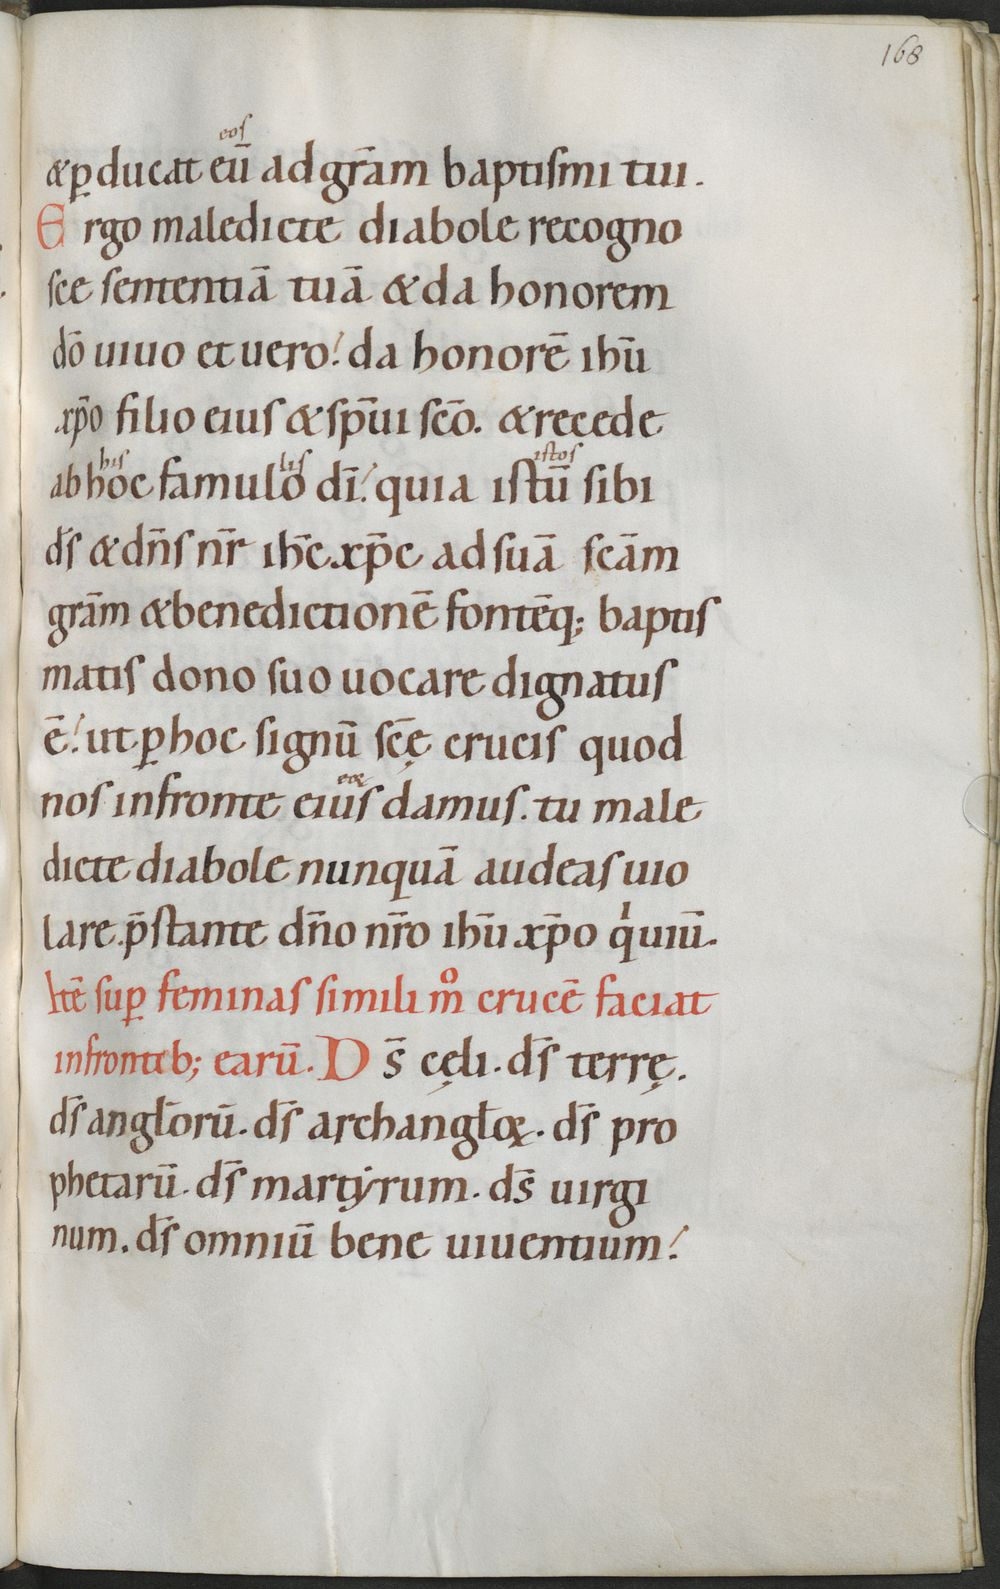 168
eos
& p̱ducat eū ad gr̄am baptismi tui.
Ergo maledicte diabole recogno
sce sententiā tuā & da honorem
dō uiuo et uero! da honorē ihū
xp̄o filio eius & sp̄ui scō. & recede
his lis istos
ab hoc famulo dī! quia istū sibi
ds̄ & dn̄s nr̄ ih̄c xp̄c ad suā scām
gr̄am & benedictionē fontēq; baptis
matis dono suo uocare dignatus
ē! ut p̱ hoc signū scę̄ crucis quod
eoꝝ
nos in fronte eius damus. tu male
dicte diabole nunquā audeas uio
lare. p̄stante dn̄o nr̄o ihū xp̄o qͥ uiū.
Itē sup̱ feminas simili mͦ crucē faciat
in fronteb; earū. Ds̄ cęli. ds̄ terrę.
ds̄ angl̄orū. ds̄ archangl̄oꝝ. ds̄ pro
phetarū. ds̄ martyrum. ds̄ uirgi
num. ds̄ omniū bene uiuentium!